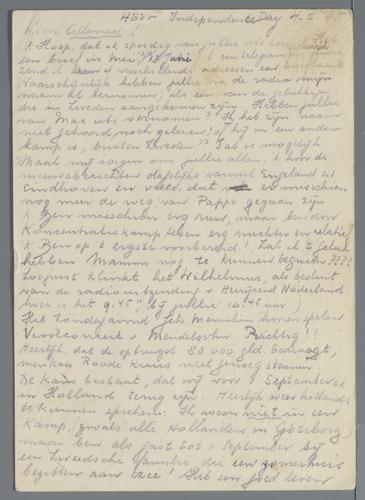 Höör Independence Day 4.
Lieve Allemaal!
'k Hoop, dat ik spoedig van jullie iets hoor!
een brief in Mei, 13 Juni een telegram
zend ik naar 4 verschillende adressen een briefkaart
Waarschijnlijk hebben jullie via de radio mijn
naam al vernomen, als één van de gelukkigen
die in Zweden aangekomen zijn. Hebben jullie
van Max iets vernomen? Ik heb zijn naam
niet gehoord noch gelezen; of hij in een ander
kamp is, buiten Zweden?? Dat is mogelijk
Maak mij zorgen om jullie allen. 'k hoor de
nieuwsberichten dagelijks vanuit Engeland en
Eindhoven en vrees, dat er misschien
nog meer de weg van Pappo gegaan zijn.
'k Ben misschien erg ruw, maar ben door
Koncentratiekamp leven erg nuchter en
'k Ben op 't ergste voorbereid! Zal ik 't geluk
hebben Mamma nog te kunnen begroeten????
Zoojuist klinkt het Wilhelmus, als besluit
van de radiouitzending v. Herrijzend Nederland
hier is het 9.45 u, bij jullie 10.45 uur.
Heb Zondagavond Jeh. Menuhin hooren spelen
Vioolconcert v Mendelsohn Prachtig!!
Heerlijk, dat de opbrengst 80 000 gld. bedraagt,
men kan Roode Kruis niet genoeg steunen.
De kans bestaat, dat wij voor 1 September
in Holland terug zijn. Heerlijk weer hollands
te kunnen spreken. Ik woon niet in een
Kamp, (zoals alle Hollanders in Göteborg)
maar ben als gast tot 1 September bij
een Zweedsche familie die een zomerhuis
bezitten aan zee! Heb een goed leven